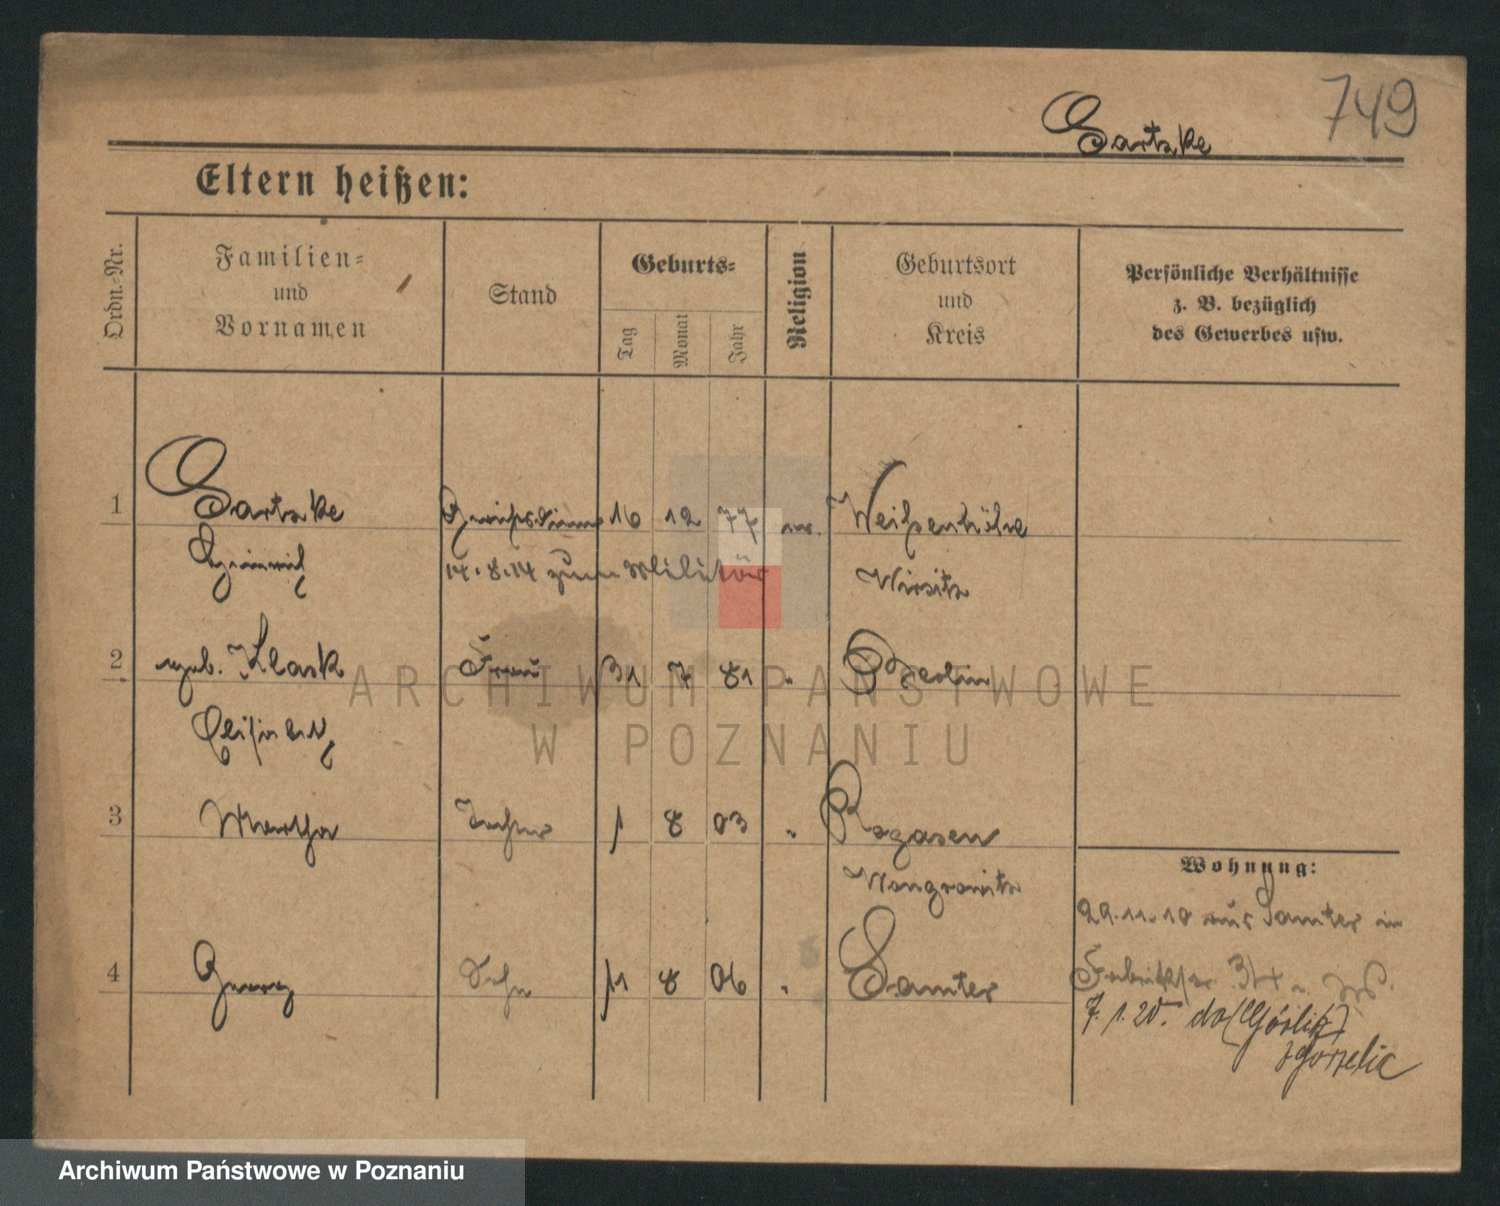 749
Gartzke
Eltern heißen:
Ordn.-Nr.
Familien-
und
Vornamen
Stand
Geburts-
Tag
Monat
Jahr
Religion
Geburtsort
und
Kreis
Persönliche Verhältnisse
z. B. bezüglich
des Gewerbes usw.
1 Gartzke Gerichtsdiener 16 12 77 ev. Weißenhöhe
Heinrich 14.8.14 zum Militär Wirsitz
2 geb. Klask Frau 31 7 81 " Berlin
Elisabeth
3 Martha Tochter 1 8 03 " Rogasen
Wongrowitz
4 Georg Sohn 11 8 06 " Samter
Wohnung:
29.11.10 aus Samter in
Fabrikstr. 34
7.1.20. do (Görlitz)
Zgorzelic
ARCHIWUM PAŃSTWOWE
W POZNANIU
Archiwum Państwowe w Poznaniu